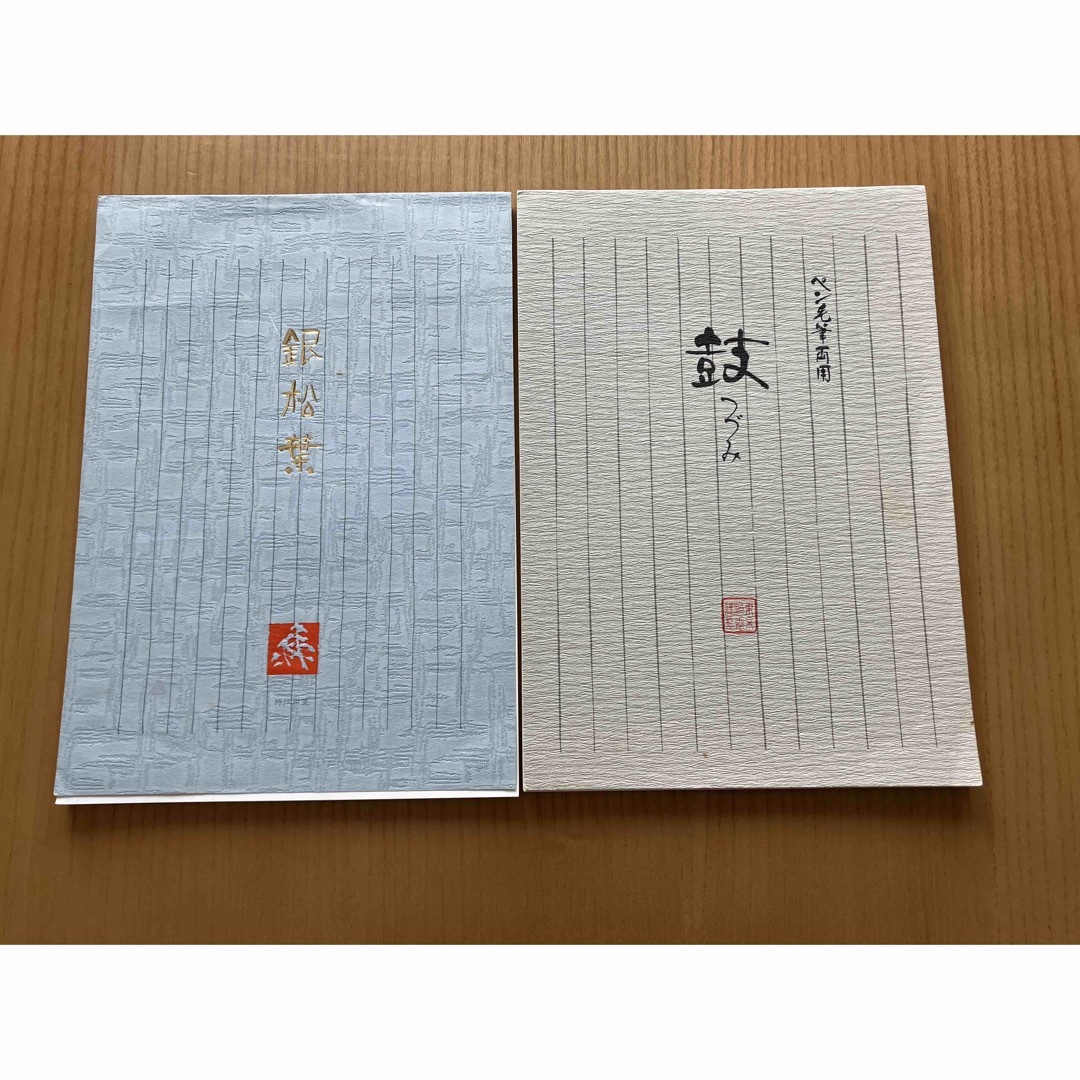 銀松葉
ペン毛筆両用
鼓
つづみ